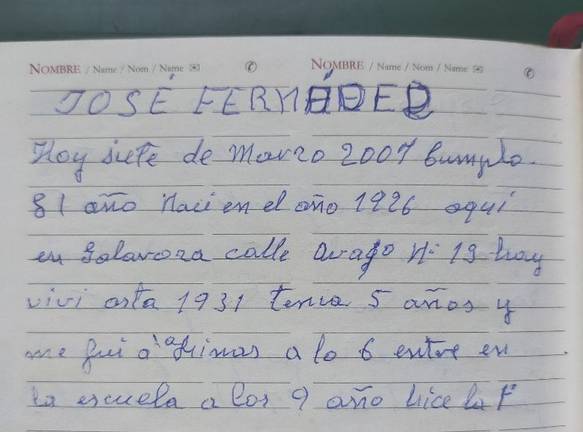 NOMBRE / Name / Nom / Name NOMBRE / Name / Nom / Name
JOSÉ
Hoy siete de Marzo 2007 Cumplo.
81 año Naci en el año 1926 aqui
en calle Nº 19 hay
vivi asta 1931 tenia 5 años y
me fui a Minas a lo 6 entre en
la escuela a los 9 año hice la 1ª